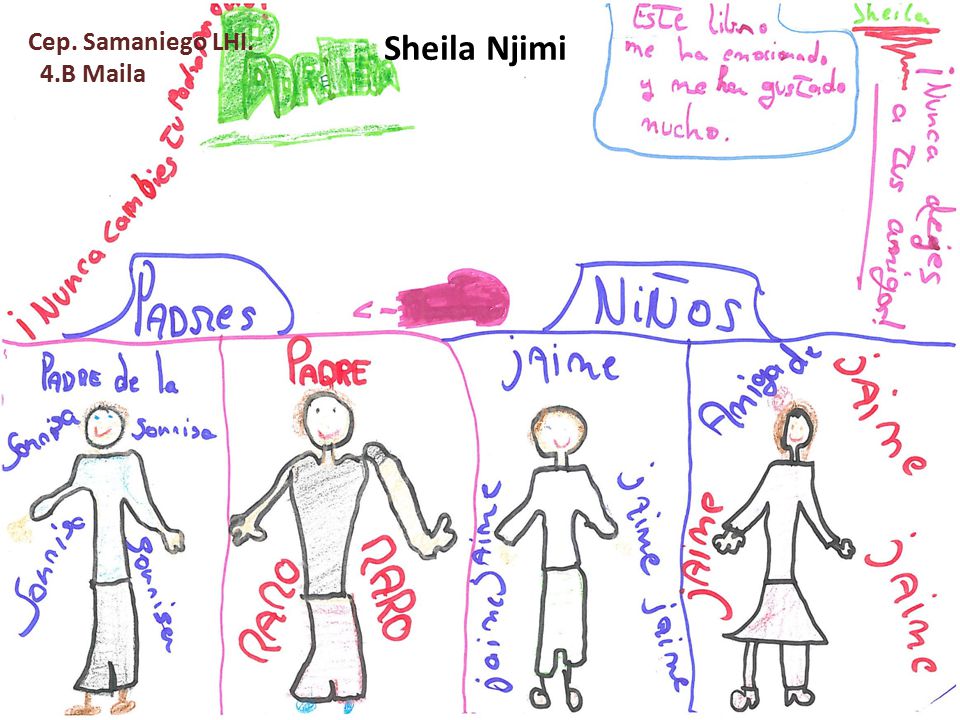 Cep. Samaniego LHI.
4.B Maila
Sheila Njimi
Este libro
me ha emosionado
y me ha gustado
mucho.
Sheila
¡Nunca dejes
a tus amigos!
¡Nunca cambies tu
PADRES
NiÑOS
PADRE de la
Sonrisa
Sonrisa
Sonrisa
PADRE
RARO
RARO
jAime
Jaime
jaime
jaime
Amiga de
jAime
jAime
jAime